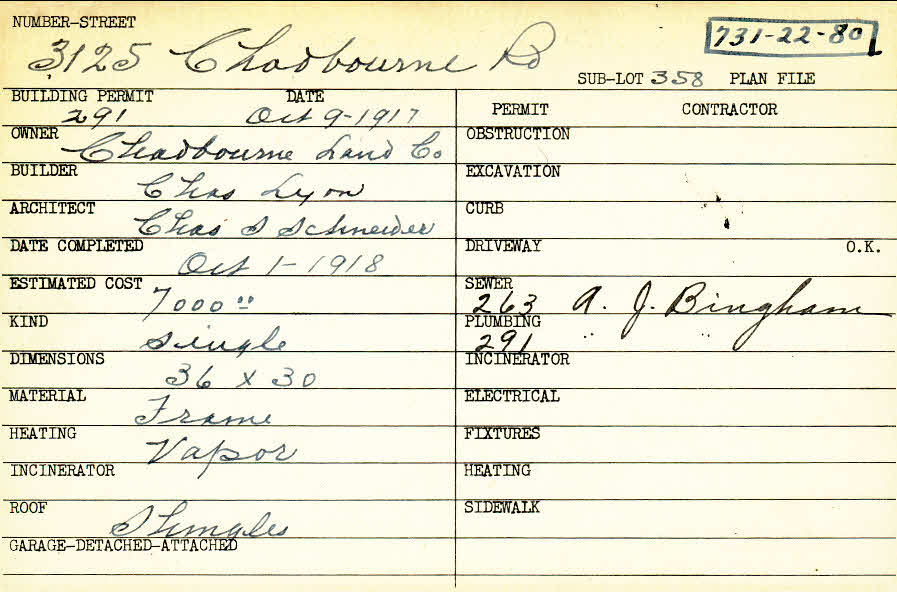 NUMBER-STREET
3125 Chadbourne Rd
731-22-80
SUB-LOT 358 PLAN FILE
BUILDING PERMIT DATE
291 Oct 9-1917
OWNER
Chadbourne Land Co.
BUILDER
Chas Lyon
ARCHITECT
Chas S Schneider
DATE COMPLETED
Oct 1-1918
ESTIMATED COST
7000 00
KIND
Single
DIMENSIONS
36 x 30
MATERIAL
Frame
HEATING
Vapor
INCINERATOR
ROOF
Shingles
GARAGE-DETACHED-ATTACHED
PERMIT CONTRACTOR
OBSTRUCTION
EXCAVATION
CURB
DRIVEWAY O.K.
SEWER
263 A. J. Bingham
PLUMBING
291 " "
INCINERATOR
ELECTRICAL
FIXTURES
HEATING
SIDEWALK